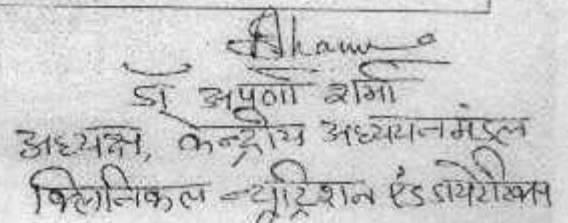 डॉ अपर्णा शर्मा
अध्यक्ष, केन्द्रीय अध्ययनमंडल
क्लिनिकल न्यूट्रिशन एंड डायेटिक्स